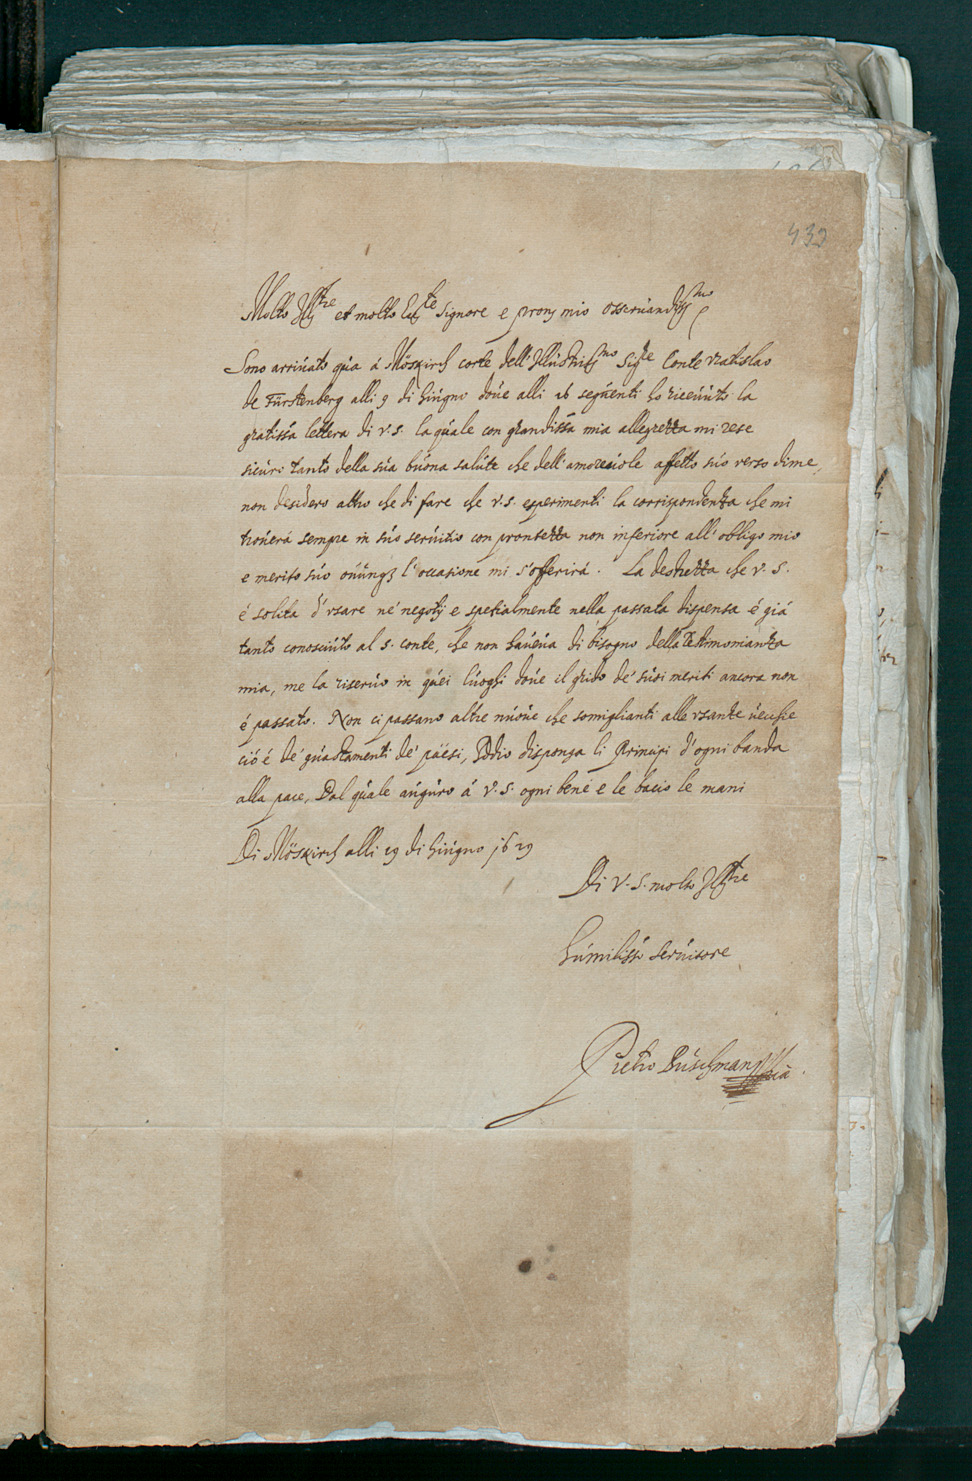 432
Molto Ill.tre et molto Ecc.te Signore e pron mio osseruandiss.mo
Sono arriuato qua á Möskirch corte dell' Illustriss.mo Sig.re Conte vratislao
de Fürstenberg alli 9 di Giugno doue alli 16 seguenti ho riceuuto la
gratissa lettera di v.s. la quale con grandissa mia allegrezza mi rese
sicuro tanto della sua buona salute che dell' amoreuole affetto suo verso di me,
non desidero altro che di fare che v.s. esperimenti la corrispondenza che mi
trouerá sempre in suo seruitio con prontezza non inferiore all' obligo mio
e merito suo ouunq3 l' occasione mi s'offerirá. La destrezza che v.s.
é solita d' vsare ne' negotij e spetialmente nella passata dispensa é giá
tanto conosciuto al s. conte, che non haueua di bisogno della testimonianza
mia, me la riseruo in quei luoghi doue il grido de' suoi meriti ancora non
é passato. Non ci passano altre nuoue che somiglianti alle vsanze uecchie
ció é de' guastamenti de' päesi, Iddio disponga li Principi d' ogni banda
alla pace, Dal quale auguro á v.s. ogni bene e le bacio le mani
Di Möskirch alli 29 di Giugno 1629
Di V.S. molto Ill.tre
humiliss.o seruitore
Pietro Büschman